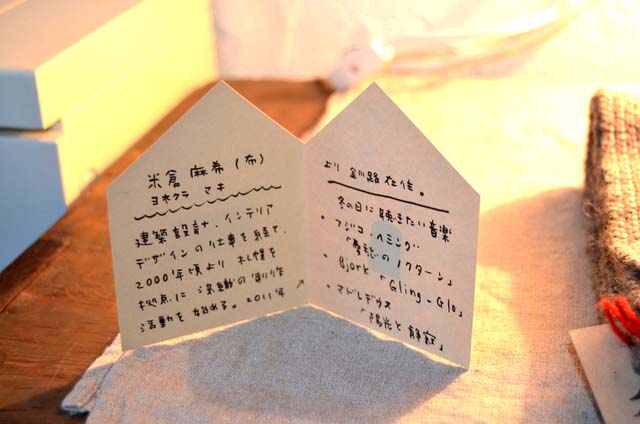 米倉 麻希 (布)
ヨネクラ マキ
建築設計、インテリア
デザインの仕事を経て、
2000年頃より 札幌を
拠点に 染織の制作
活動を 始める。2011年
より 釧路在住。
冬の日に 聴きたい音楽
・フジコ ヘミング
「憂愁のノクターン」
・Bjork 「Gling-Glo」
・マドレデウス
「陽光と静寂」